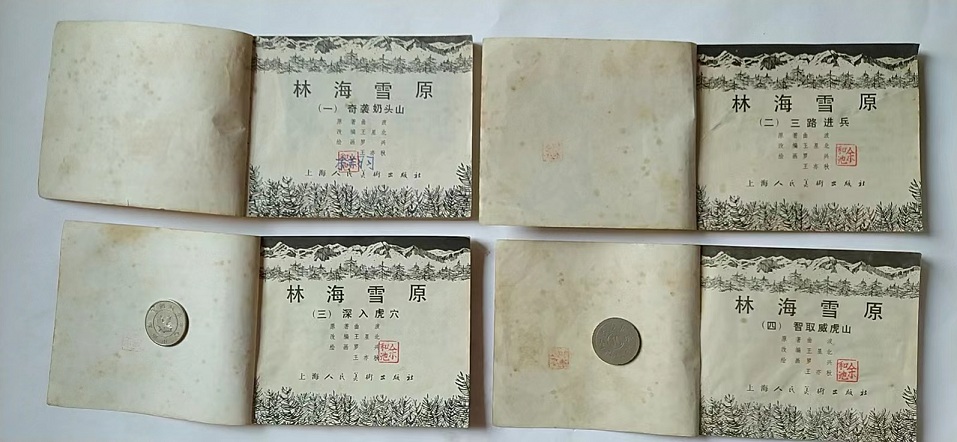 林海雪原
（一）奇袭奶头山
原著曲波
改编王星北
绘画罗兴
王亦秋
上海人民美术出版社
林海雪原
（二）三路进兵
原著曲波
改编王星北
绘画罗兴
王亦秋
上海人民美术出版社
林海雪原
（三）深入虎穴
原著曲波
改编王星北
绘画罗兴
王亦秋
上海人民美术出版社
林海雪原
（四）智取威虎山
原著曲波
改编王星北
绘画罗兴
王亦秋
上海人民美术出版社